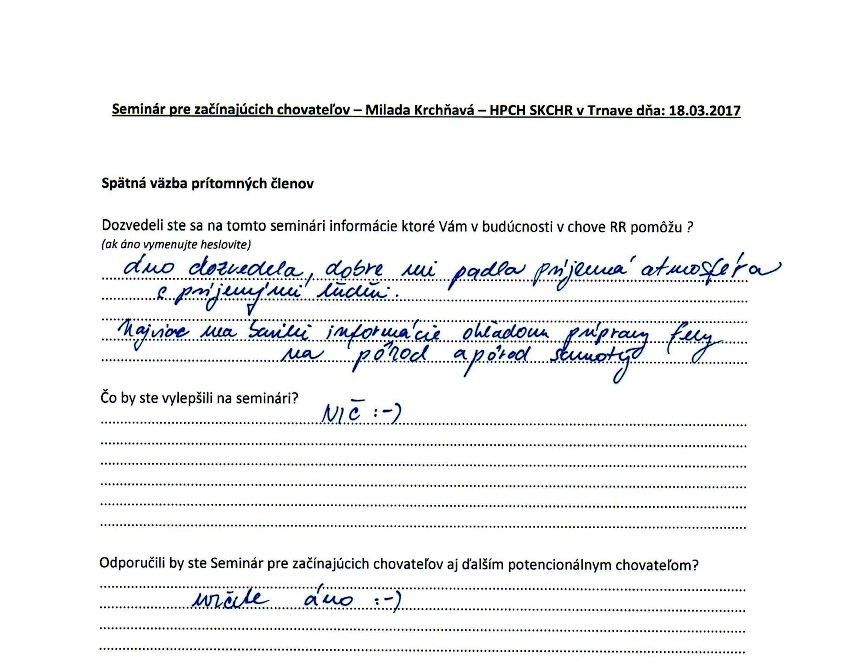 Seminár pre začínajúcich chovateľov – Milada Krchňavá – HPCH SKCHR v Trnave dňa: 18.03.2017
Spätná väzba prítomných členov
Dozvedeli ste sa na tomto seminári informácie ktoré Vám v budúcnosti v chove RR pomôžu ?
(ak áno vymenujte heslovite)
áno dozvedela, dobre mi padla príjemná atmosféra
s príjemými ľuďmi.
Najviac ma informácie ohľadom prípravy feny
na pôrod a pôrod samotný
Čo by ste vylepšili na seminári?
NIČ :-)
Odporučili by ste Seminár pre začínajúcich chovateľov aj ďalším potencionálnym chovateľom?
určite áno :-)